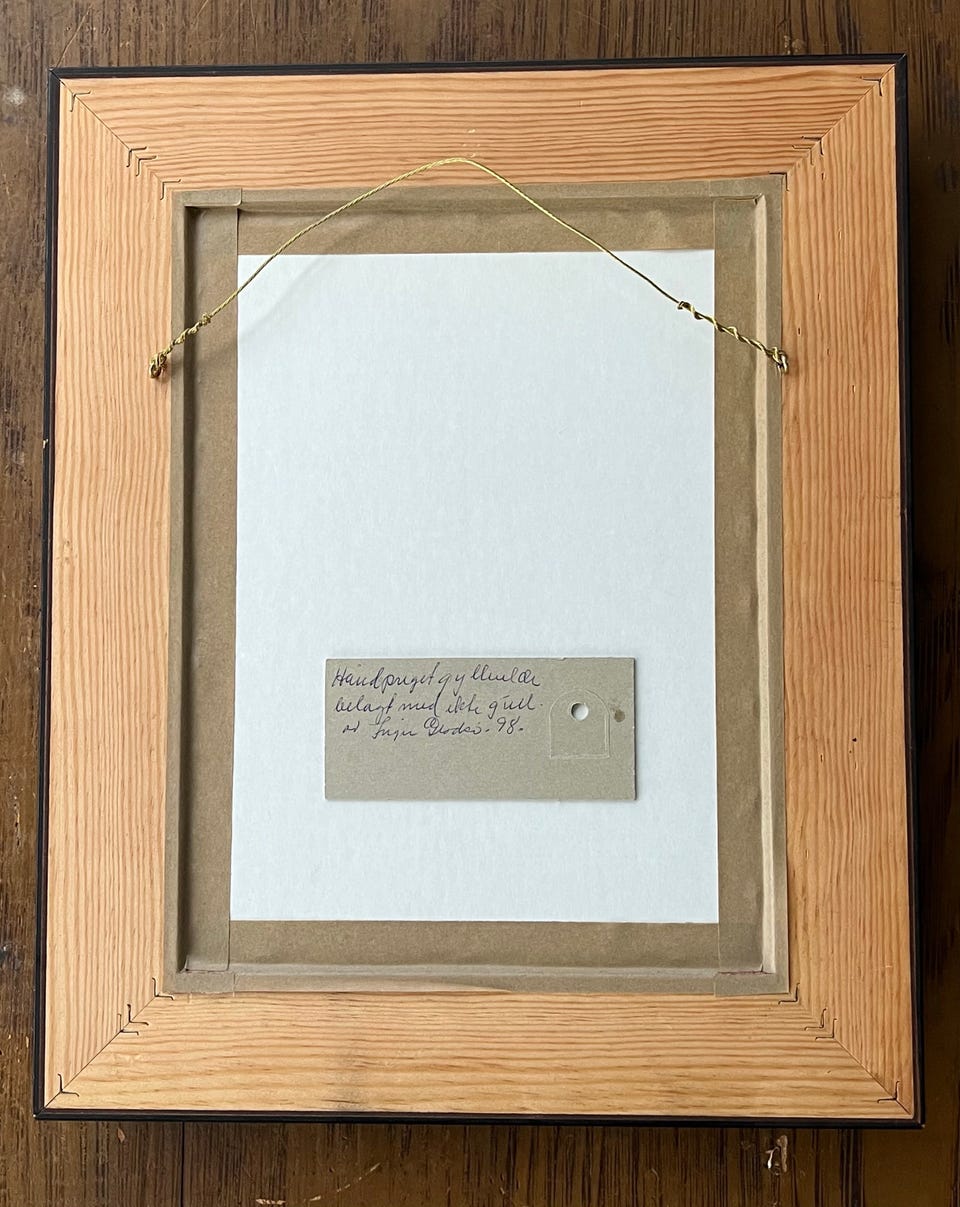 Håndpreget gyllenlær
belagt med ekte gull.
av 98.